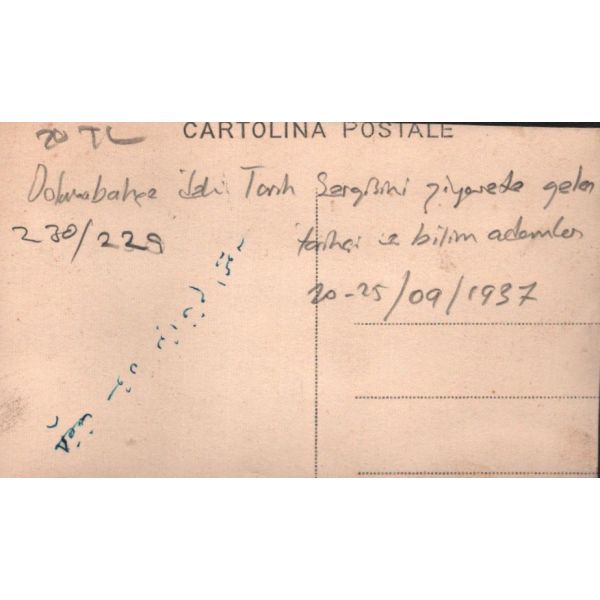 20 TL
CARTOLINA POSTALE
Dolmabahçe Tarih Sergisini ziyarete gelen
230/229
tarihçi ve bilim adamları
20-25/09/1937